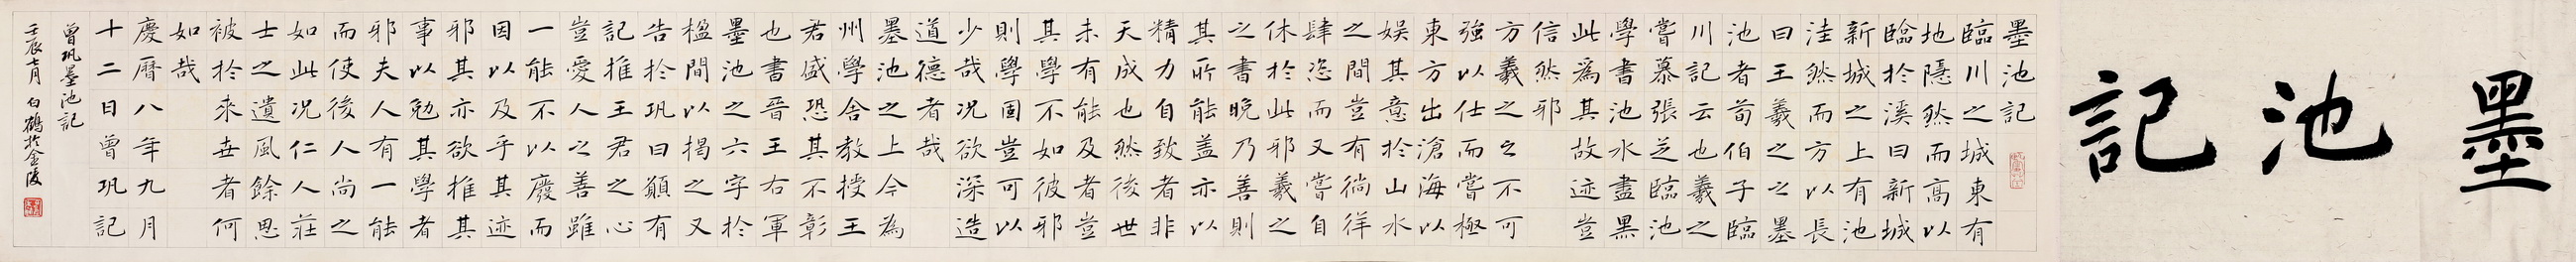 墨池記
墨池記
臨川之城東有
地隱然而高以
臨於溪曰新城
新城之上有池
洼然而方以長
曰王羲之之墨
池者荀伯子臨
川記云也羲之
嘗慕張芝臨池
學書池水盡黑
此為其故迹豈
信然邪
方羲之之不可
強以仕而嘗極
東方出滄海以
娛其意於山水
之間豈有徜徉
肆恣而又嘗自
休於此邪羲之
之書晚乃善則
其所能蓋亦以
精力自致者非
天成也然後世
未有能及者豈
其學不如彼邪
則學固豈可以
少哉況欲深造
道德者哉
墨池之上今為
州學舍教授王
君盛恐其不彰
也書晉王右軍
墨池之六字於
楹間以揭之又
告於巩曰願有
記推王君之心
豈愛人之善雖
一能不以廢而
因以及乎其迹
邪其亦欲推其
事以勉其學者
邪夫人有一能
而使後人尚之
如此況仁人莊
士之遺風餘思
被於來世者何
如哉
慶曆八年九月
十二日曾巩記
曾巩墨池記
壬辰七月 白鶴於金陵